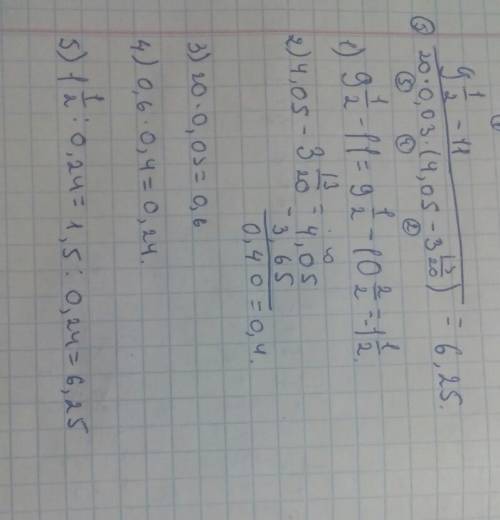 ①
9 1/2 - 11
⑤ ─────────── = 6,25.
20·0,03·(4,05 - 3 13/20)
③ ④ ②
1) 9 1/2 - 11 = 9 1/2 - 10 2/2 = 1 1/2.
2) 4,05 - 3 13/20 = 4,05
- 3,65
0,40 = 0,4.
3) 20·0,03=0,6
4) 0,6·0,4=0,24.
5) 1 1/2 : 0,24 = 1,5 : 0,24 = 6,25